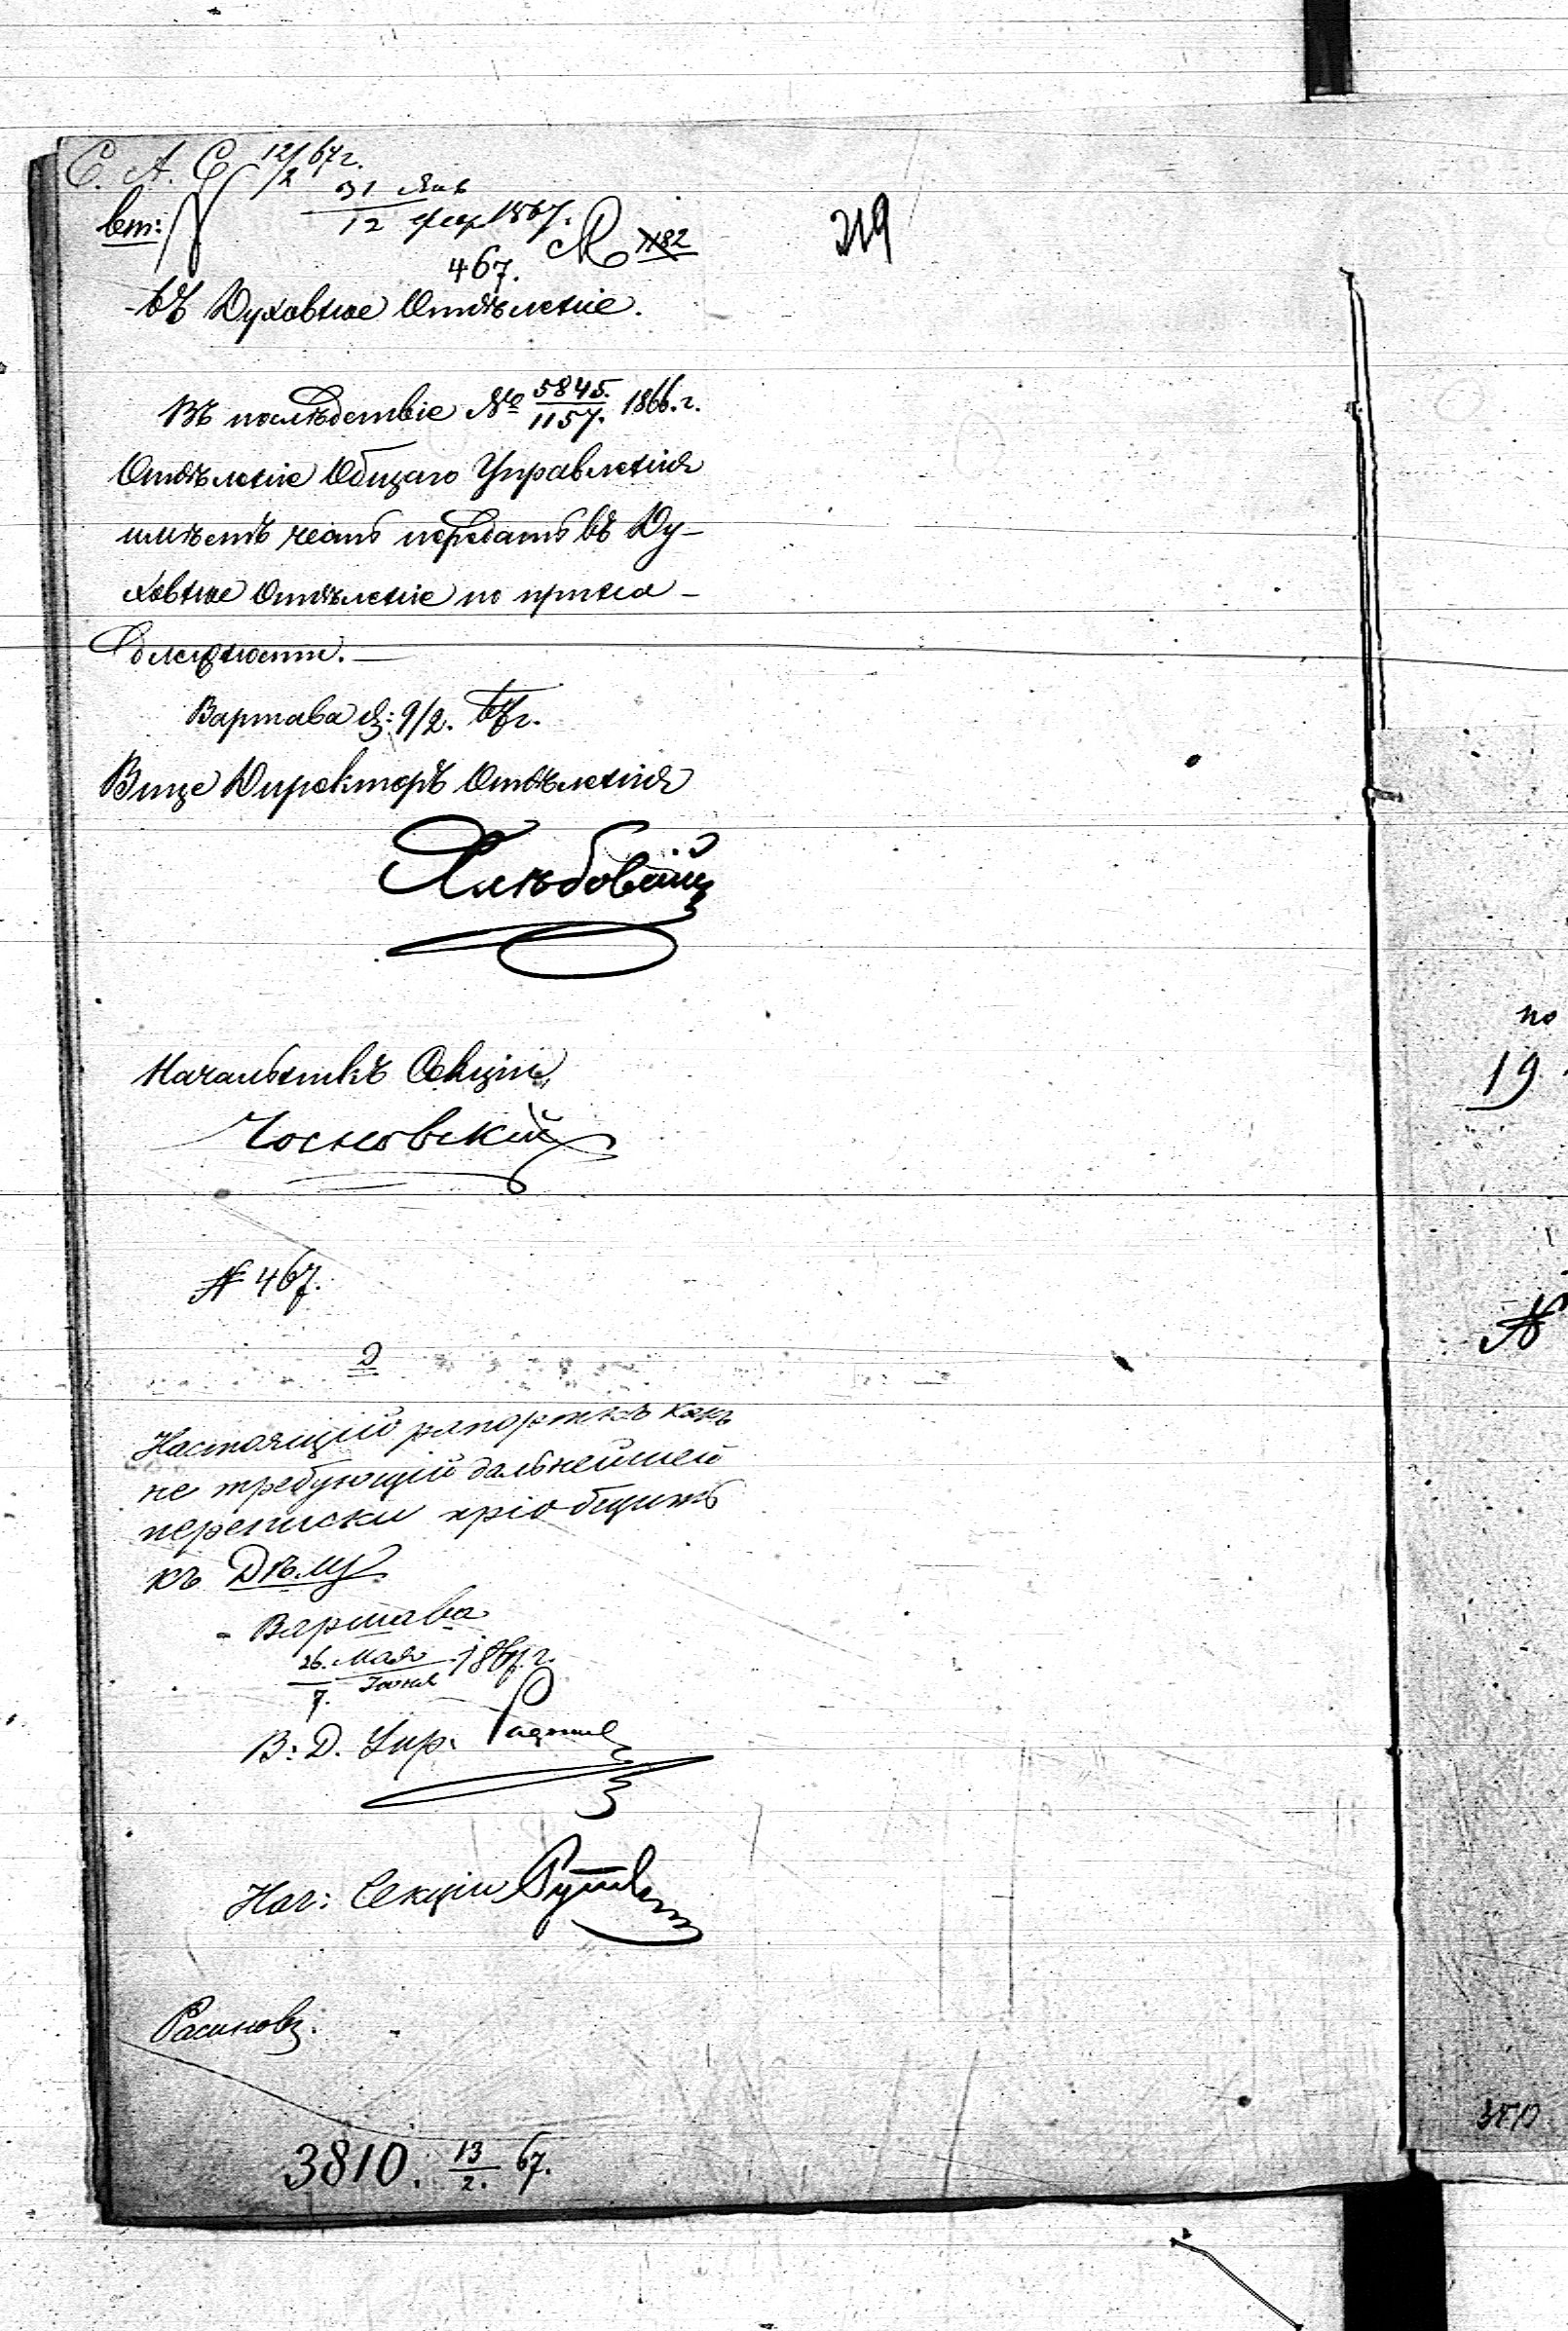 С. А. С 12/2 67 г.
вт:
31 Янв
12 февр 1867.
467.
1182
319
въ Духовное Отдѣленіе.
Въ послѣдствіе № 5845./1157. 1866. г.
Отдѣленіе Общаго Управленія
имѣетъ честь передать въ Ду-
ховное Отдѣленіе по принад-
лежности.—
Варшава д: 9/2. 67 г.
Вице Директоръ Отдѣленія
Хлѣбовскій
Начальникъ Секціи
Чосновскій
№ 467.
Настоящій рапортъ какъ
не требующій дальнейшей
переписки пріобщить
къ Дѣлу
Варшава
26. Мая / 7. Іюня 1867. г.
В: Д. Упр.
Нач: Секціи
3810. 13/2. 67.
по
19
№